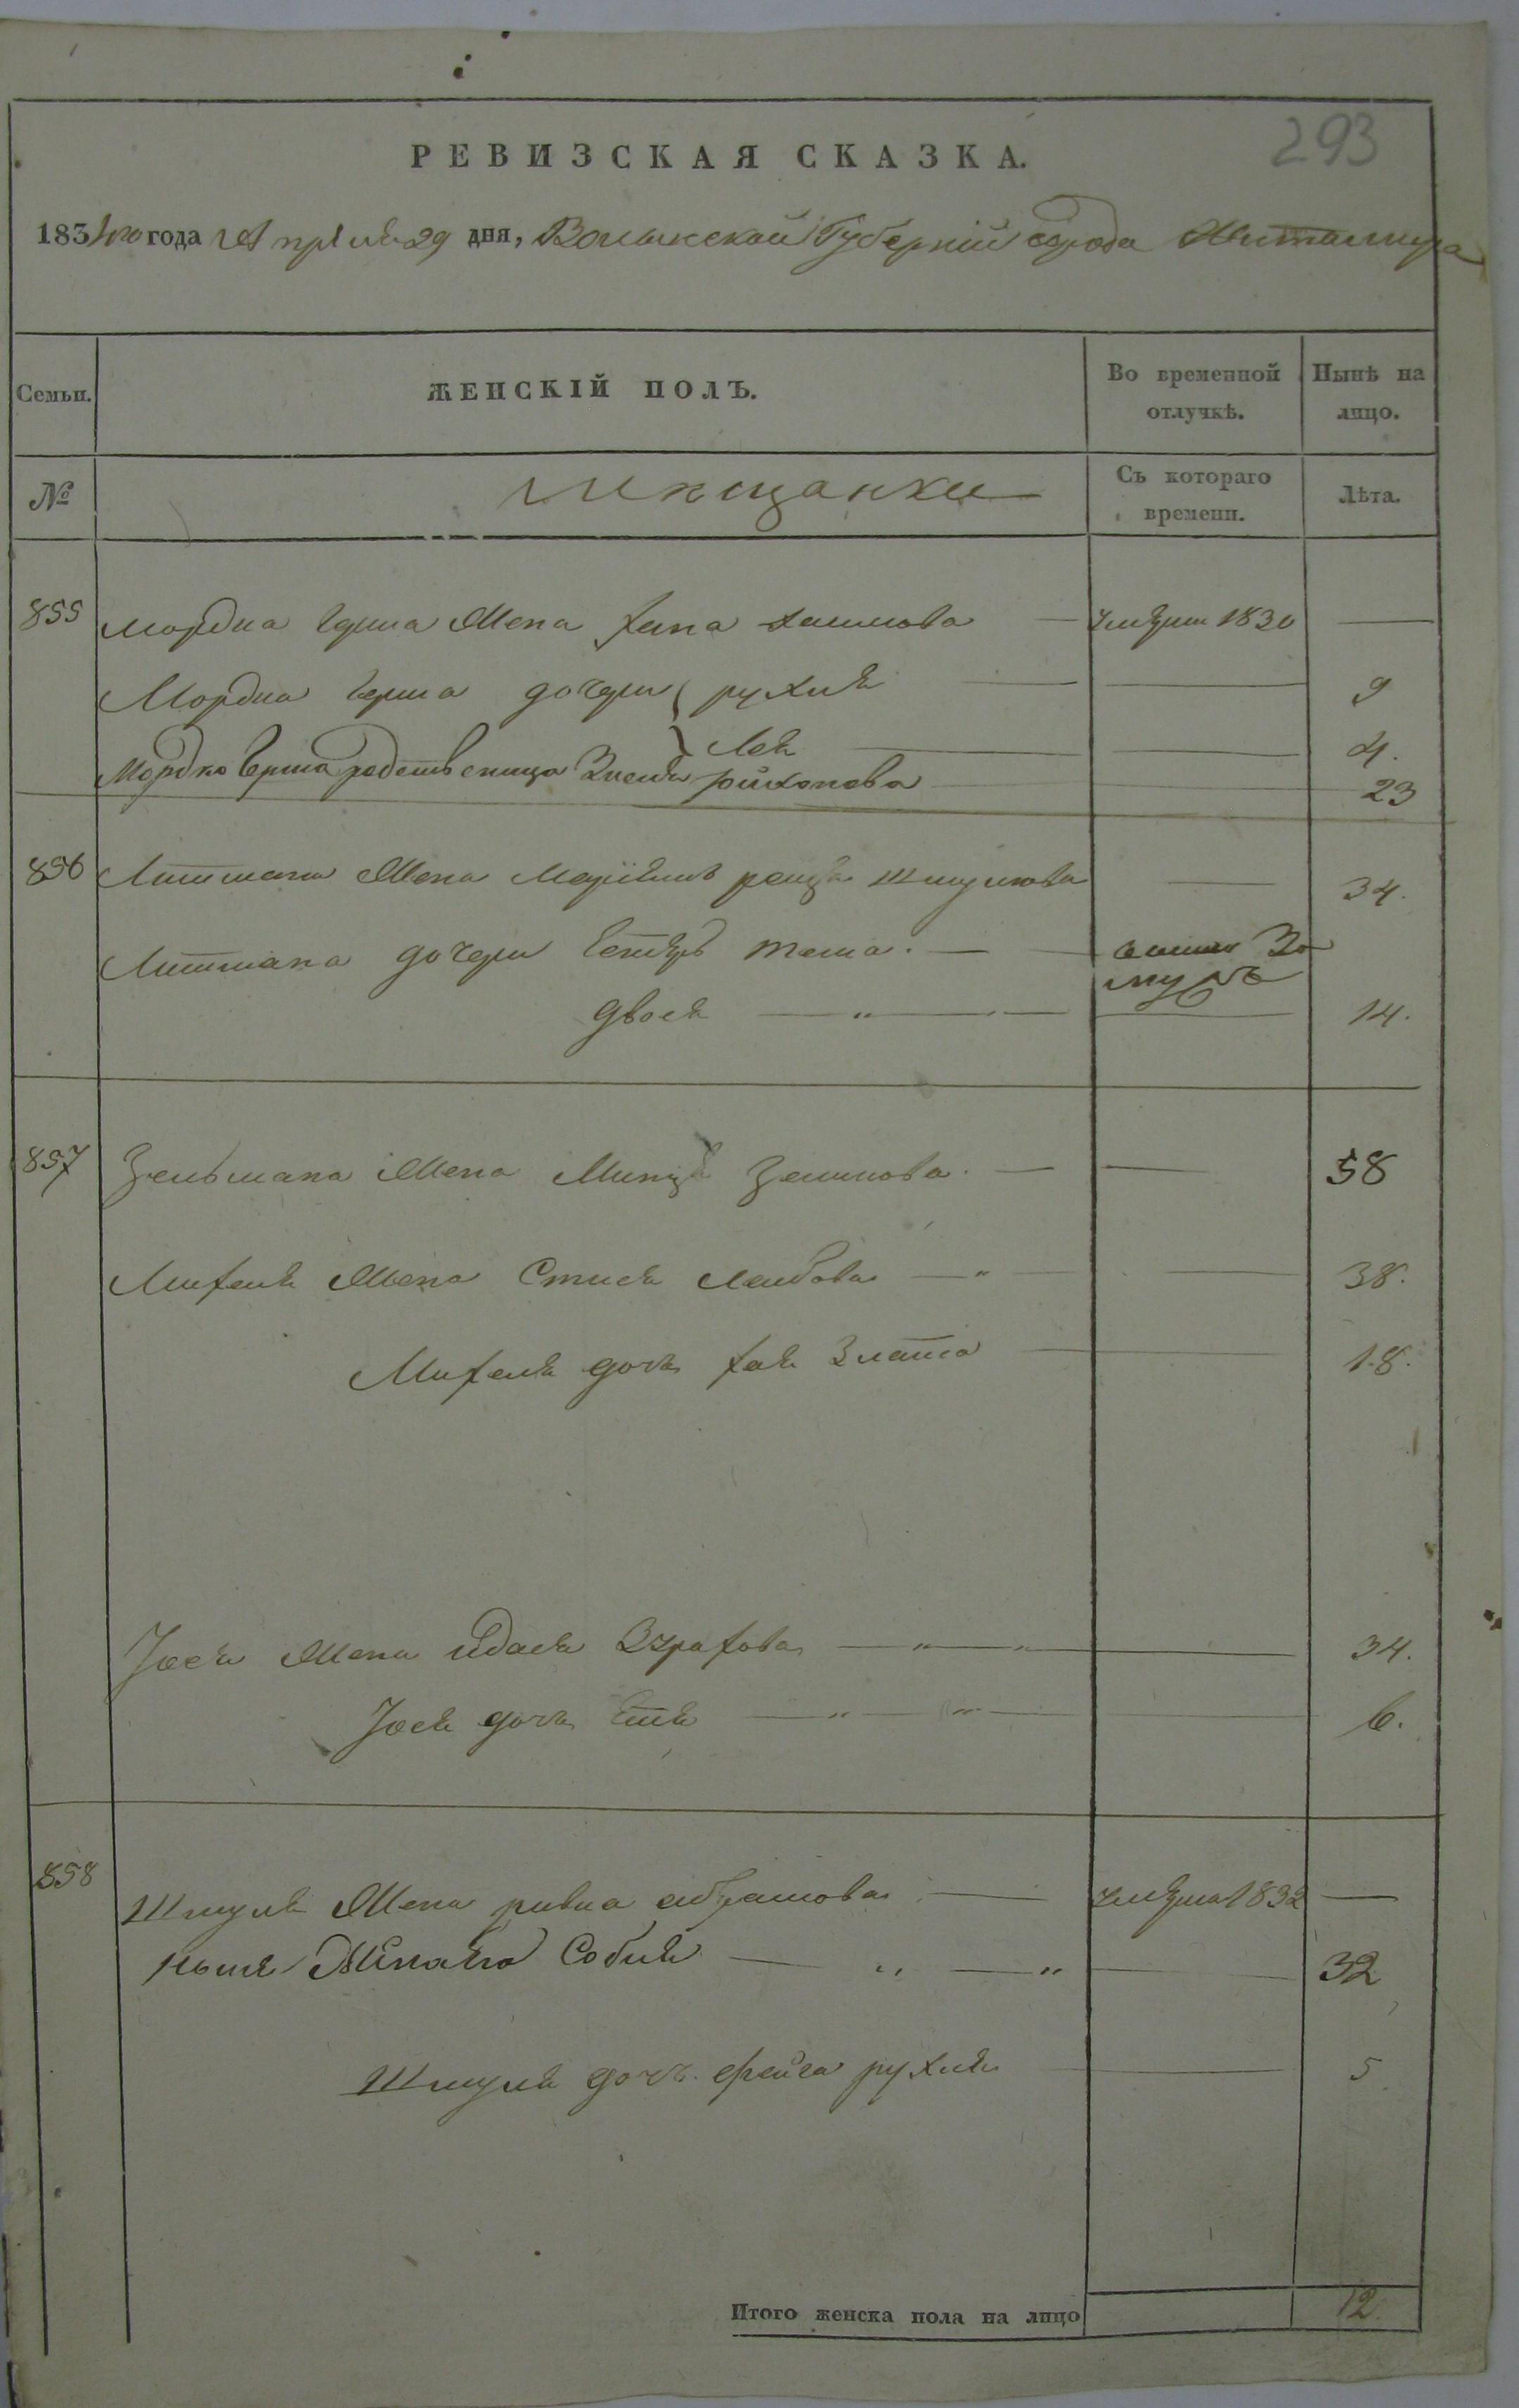 293
РЕВИЗСКАЯ СКАЗКА.
1834го года Апреля 29 дня, Волынской Губерніи города Житомира
Семьи. ЖЕНСКІЙ ПОЛЪ. Во временной отлучкѣ. Нынѣ на лицо.
№ мещанки Съ котораго времени. Лѣта.
855 Мордка Герша Жена Хана Хаимова — умерла 1830 —
Мордка Герша дочери рухля — — 9
Лея — — 4.
Мордко Герша родственица — 23
856 Литмана Жена Маріямъ Шмулиова — 34.
Литмана дочери Естеръ — вышла За мужъ
Двося — " — — 14.
857 Зельмана Жена Минця Зелмнова. — — 58
Михеля Жена Стися Леибова — " — — 38.
Михеля дочь Хая Злата — — 18.
Іося Жена Идася — " — " — 34.
Іося дочь Етя — " — " — — 6.
858 Шмуля Жена ривка абрамова — умерла 1832 —
Ныне Женат на Собля — " — " — 32
Шмуля дочь фейга рухля — 5
Итого женска пола на лицо 12.